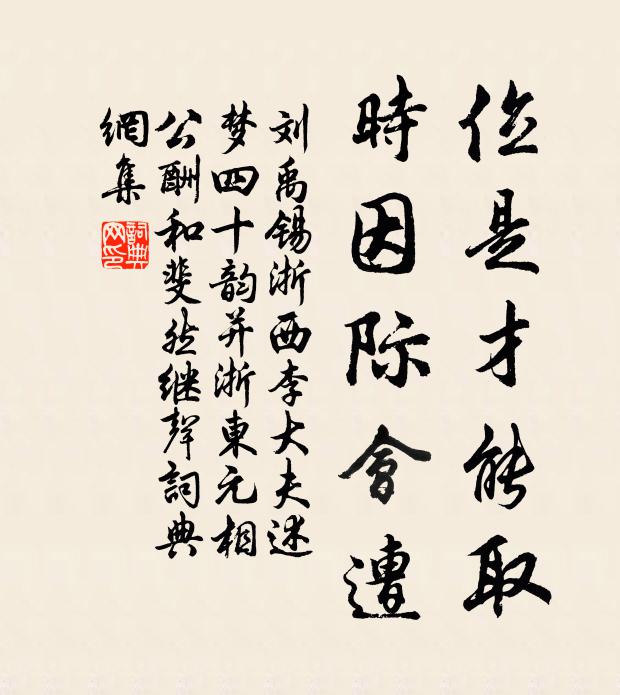 位是才能取
時因际會遭
刘禹锡浙西李大夫述
梦四十韵并浙東元相
公酬和斐然继聲詞典
網集
詞典網印